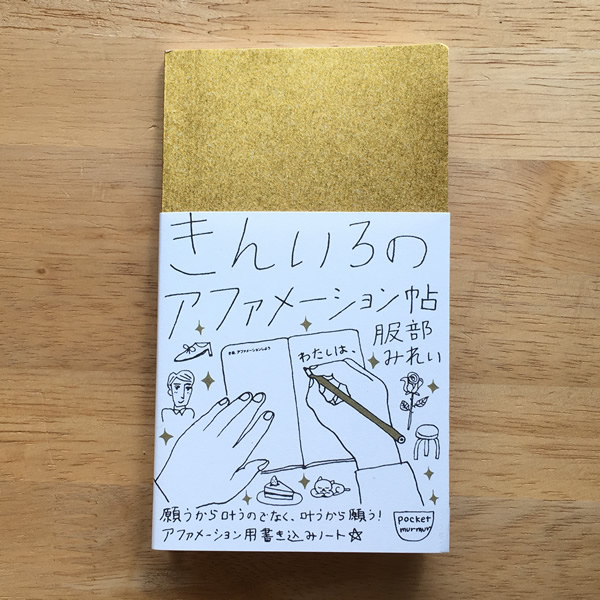 きんいろの
アファメーション帖
服部
みれい
本日、アファメーションしよう
わたしは、
願うから叶うのでなく、叶うから願う!
アファメーション用書き込みノート☆
pocket
murmur